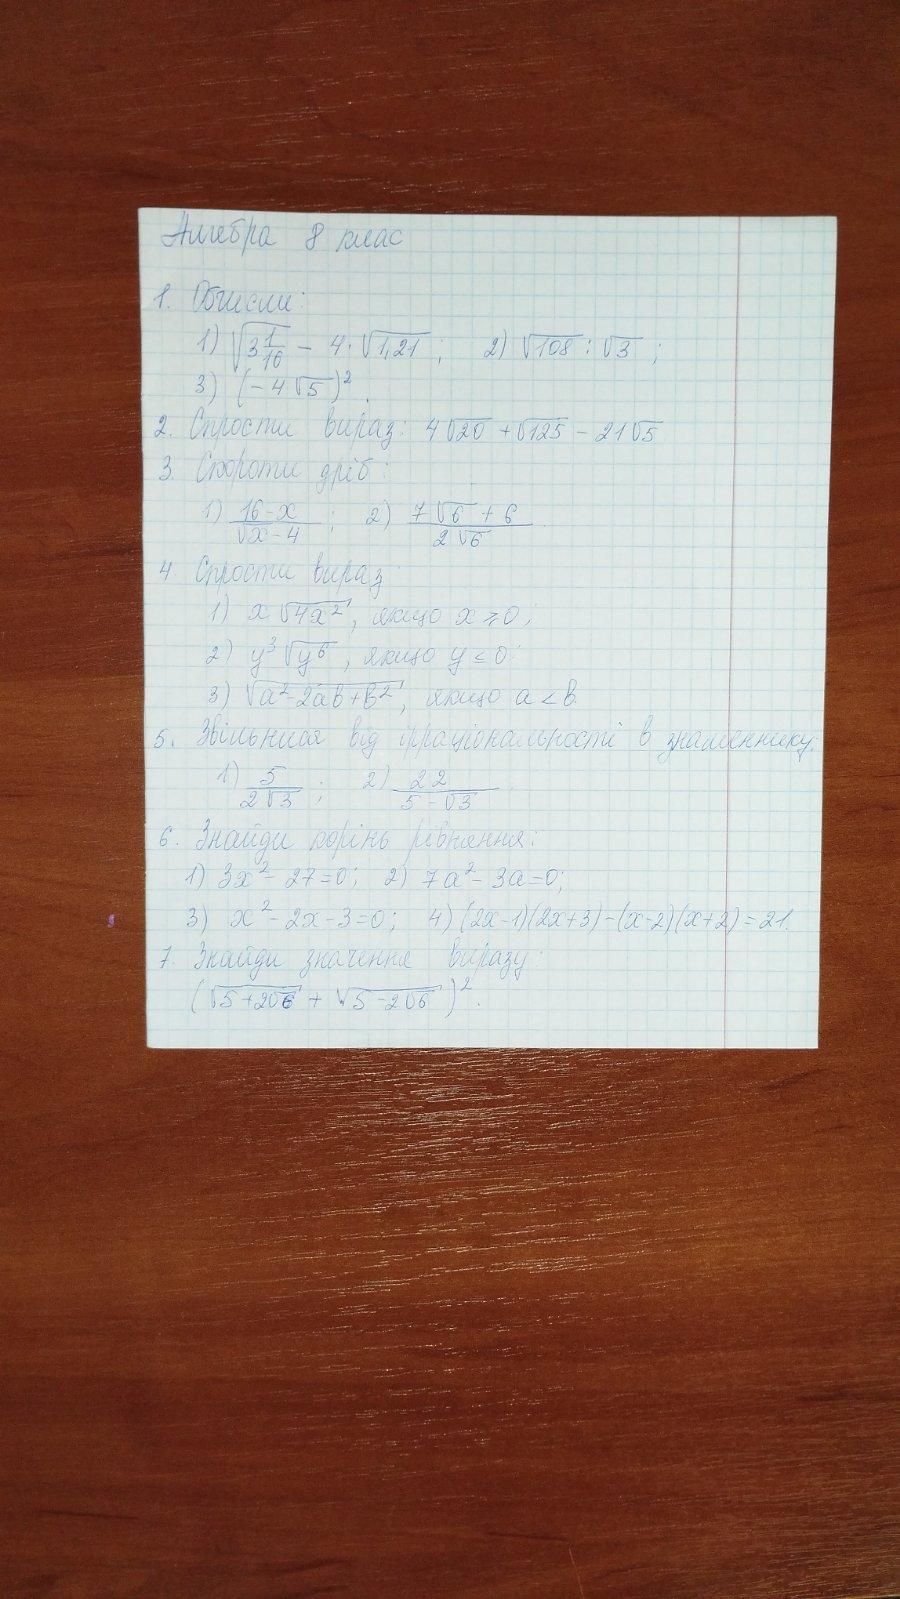 Алгебра 8 клас
1. Обчисли:
1) √(3 1/16) - 4·√(1,21); 2) √108 : √3;
3) (-4√5)².
2. Спрости вираз: 4√20 + √125 - 21√5.
3. Скороти дріб:
1) (16-x)/(√x-4); 2) (7√6+6)/(2√6).
4. Спрости вираз:
1) x√(4x²), якщо x ≥ 0;
2) y³√(y⁶), якщо y ≤ 0.
3) √(a²-2ab+b²), якщо a < b.
5. Звільнися від ірраціональності в знаменнику:
1) 5/(2√3); 2) 22/(5-√3).
6. Знайди корінь рівняння:
1) 3x² - 27 = 0; 2) 7a² - 3a = 0;
3) x² - 2x - 3 = 0; 4) (2x-1)(2x+3) - (x-2)(x+2) = 21.
7. Знайди значення виразу:
(√(5+2√6) + √(5-2√6))².